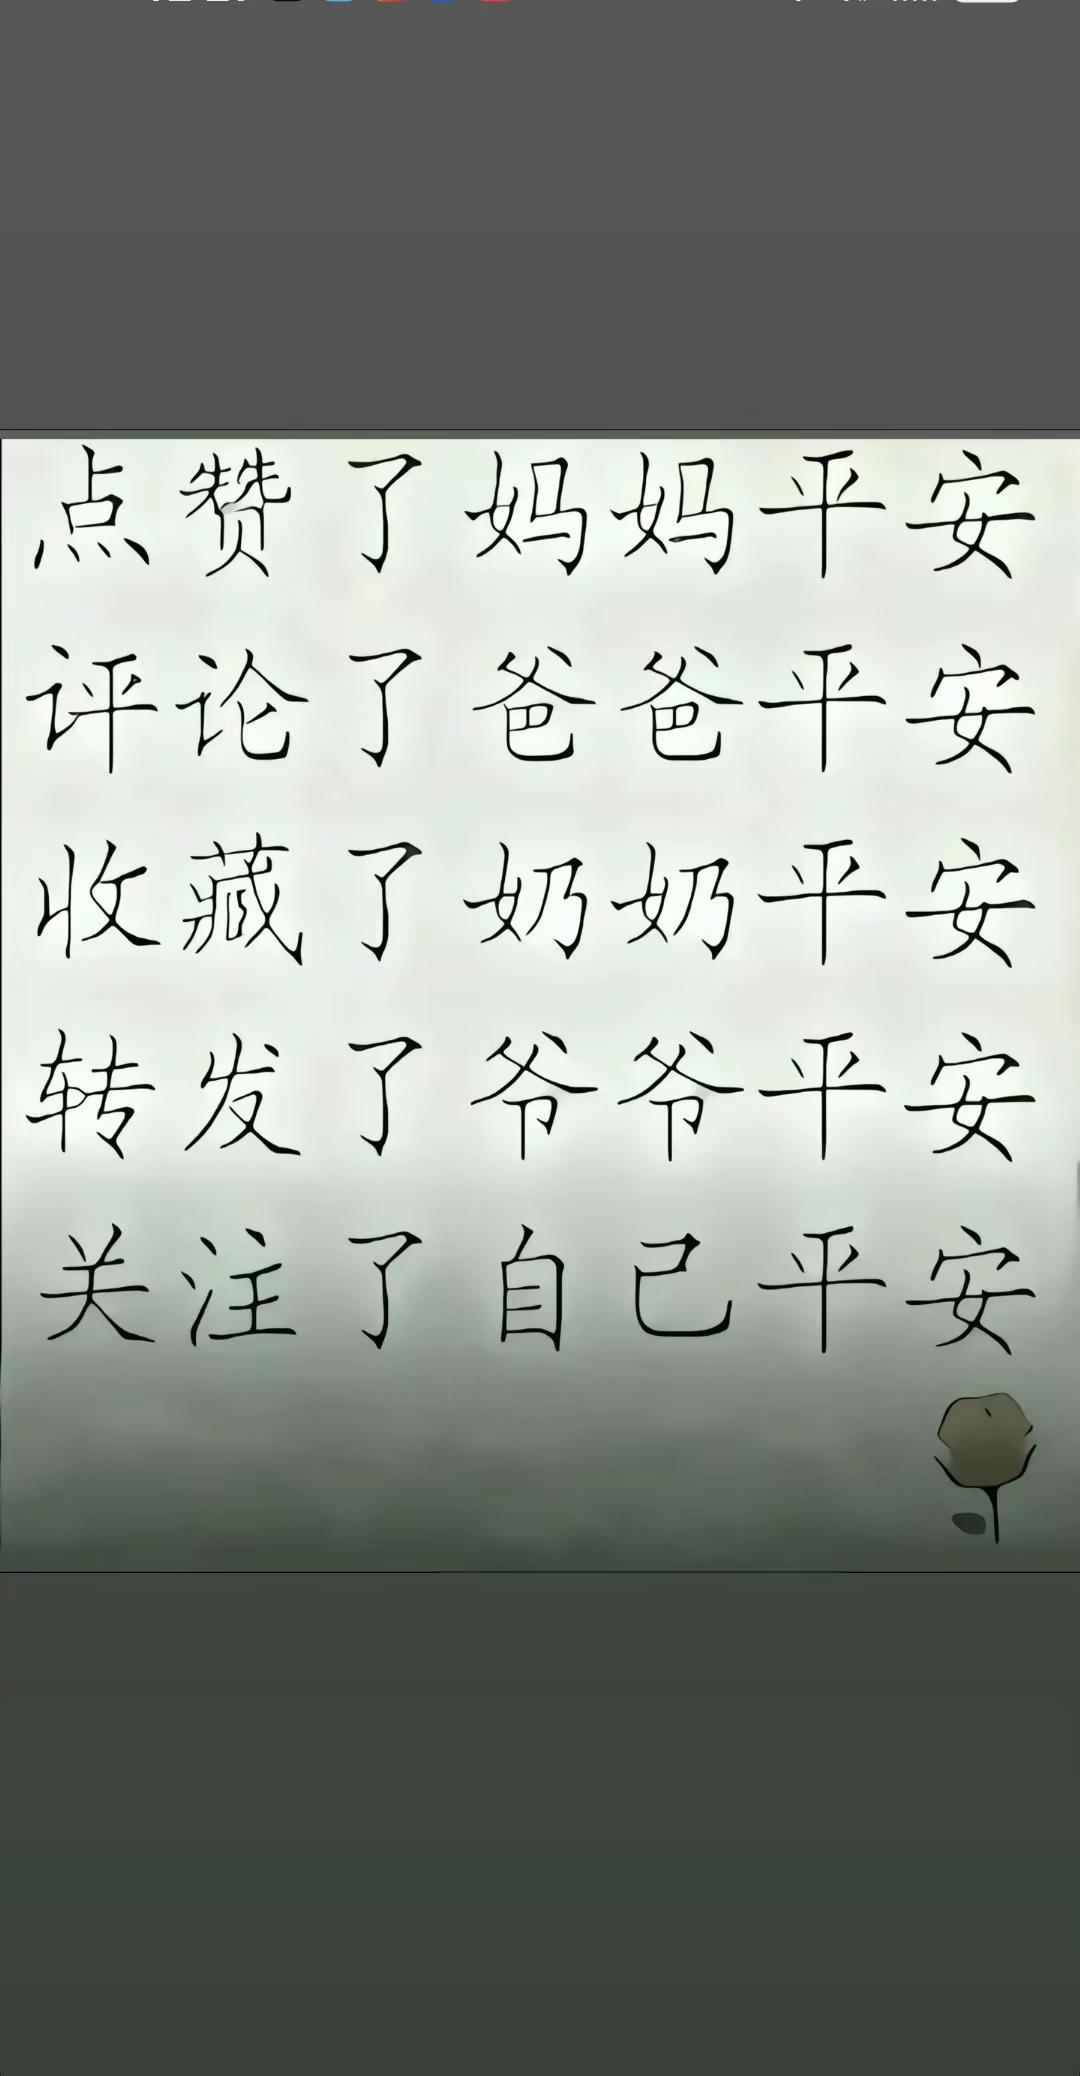 点赞了 妈妈平安
评论了 爸爸平安
收藏了 奶奶平安
转发了 爷爷平安
关注了 自己平安